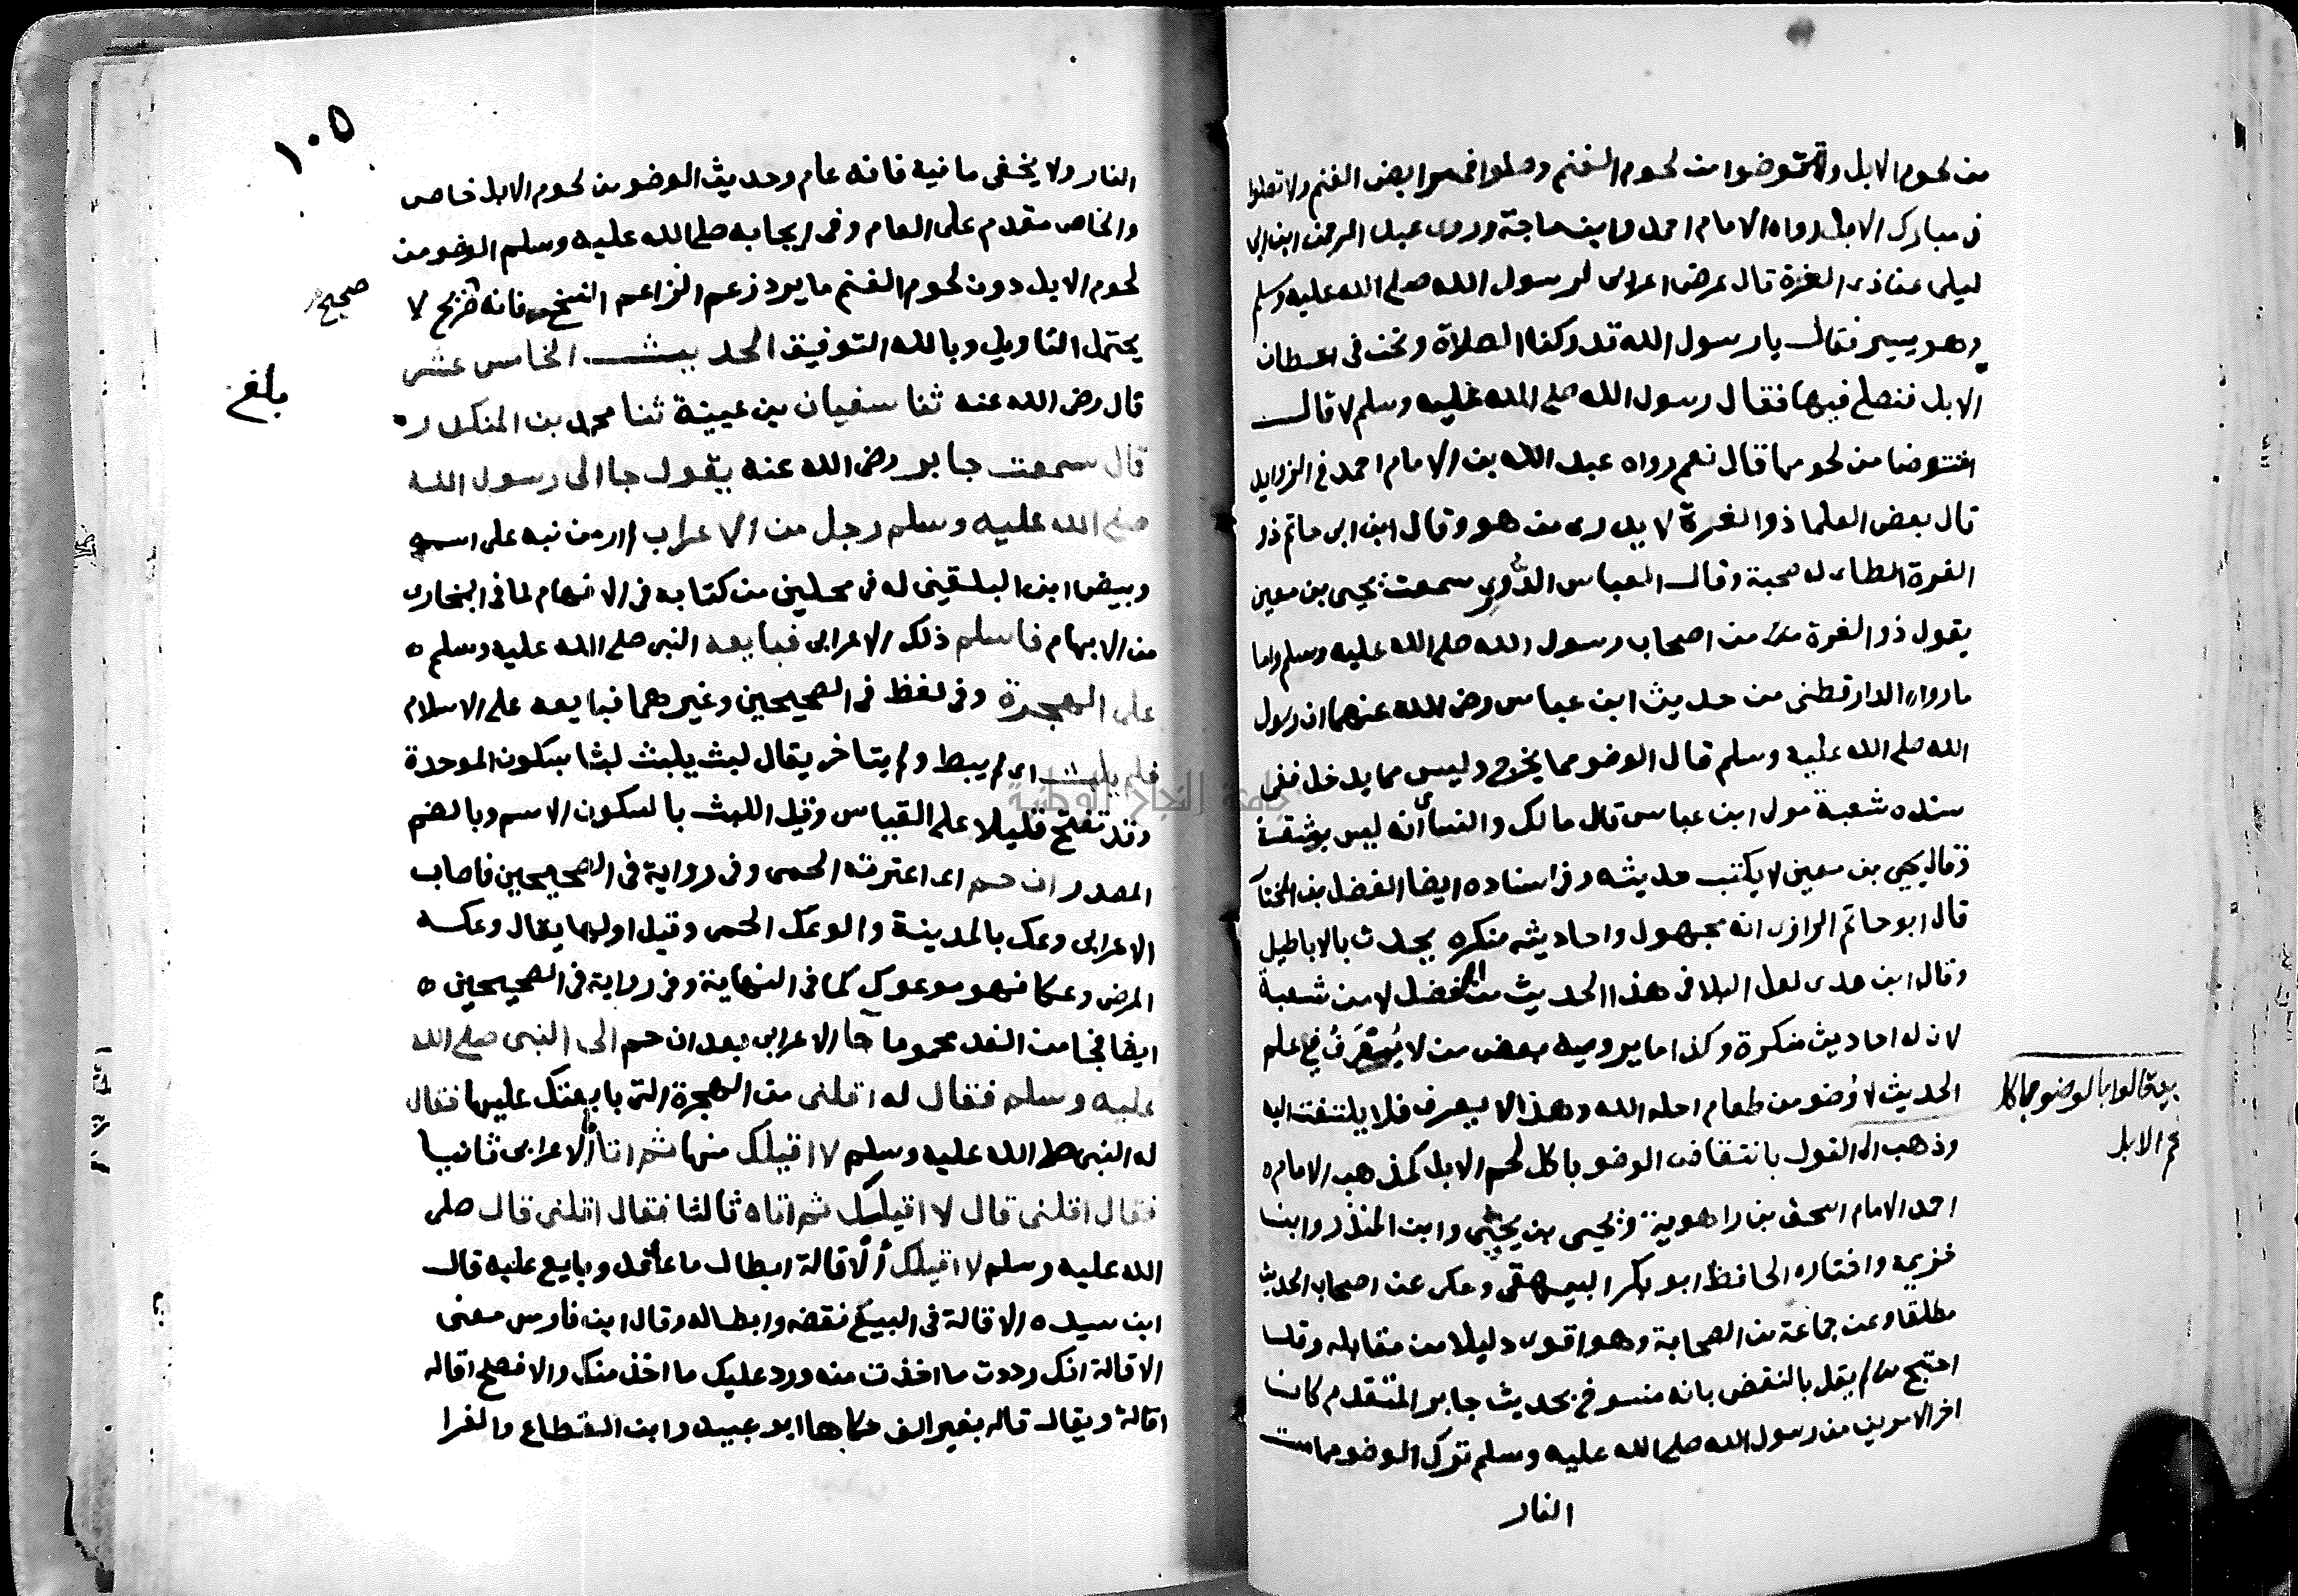 من لحوم الابل ولا تتوضوا من لحوم الغنم وصلوا فى مرابض الغنم ولا تصلوا
فى مبارك الابل رواه الامام احمد وابن ماجة وروى عبد الرحمن ابن ابى
ليلى عن ذى الغرة قال عرض اعرابى لرسول الله صلى الله عليه وسلم
وهو يسير فقال يا رسول الله تدركنا الصلاة ونحن فى اعطان
الابل فنصلى فيها فقال رسول الله صلى الله عليه وسلم لا قال
افنتوضا من لحومها قال نعم رواه عبد الله بن الامام احمد فى الزوايد
قال بعض العلما ذو الغرة لا يدرى من هو وقال ابن ابى حاتم ذو
الغرة الطاى له صحبة وقال العباس الدورى سمعت يحيى بن معين
يقول ذو الغرة من اصحاب رسول الله صلى الله عليه وسلم واما
ما رواه الدارقطنى من حديث ابن عباس رضى الله عنهما ان رسول
الله صلى الله عليه وسلم قال الوضو مما يخرج وليس مما يدخل ففى
سنده شعبة مولى ابن عباس قال مالك والنسائى انه ليس بثقة
وقال يحيى بن معين لا يكتب حديثه وفى اسناده ايضا الفضل بن المختار
قال ابو حاتم الرازى انه مجهول واحاديثه منكره يحدث بالاباطيل
وقال ابن عدى لعل البلا فى هذا الحديث من الفضل لا من شعبة
لان له احاديث منكرة وكذا ما يرويه بعض من لا يعرف فى علم
الحديث لا وضو من طعام احله الله وهذا لا يعرف فلا يلتفت اليه
وذهب الى القول بانتقاض الوضو باكل لحم الابل كمذهب الامام
احمد الامام اسحق بن راهوية ويحيى بن يحيى وابن المنذر وابن
خزيمه واختاره الحافظ ابو بكر البيهقى وحكى عن اصحاب الحديث
مطلقا وعن جماعة من الصحابة وهو اقوى دليلا من مقابله وقد
احتج من لم يقل بالنقض بانه منسوخ بحديث جابر المتقدم كان
اخر الامرين من رسول الله صلى الله عليه وسلم ترك الوضو مما مست
النار
قالوا بالوضو
لحم الابل
١٠٥
النار ولا يخفى ما فيه فانه عام وحديث الوضو من لحوم الابل خاص
والخاص مقدم على العام وفى ايجابه صلى الله عليه وسلم الوضو من
لحوم الابل دون لحوم الغنم ما يرد زعم الزاعم النسخ فانه صريح لا
صحيح
يحتمل التاويل وبالله التوفيق الحديث الخامس عشر
بلغ
قال رضى الله عنه ثنا سفيان بن عيينة ثنا محمد بن المنكدر
قال سمعت جابر رضى الله عنه يقول جا الى رسول الله
صلى الله عليه وسلم رجل من الاعراب لم ار من نبه على اسمه
وبيض ابن البلقينى له فى محلين من كتابه فى الافهام لما فى البخارى
من الابهام فاسلم ذلك الاعرابى فبايعه النبى صلى الله عليه وسلم
على الهجرة وفى لفظ فى الصحيحين وغيرهما فبايعه على الاسلام
فلم يلبث اى لم يبط ولم يتاخر يقال لبث يلبث لبثا بسكون الموحدة
وقد تفتح قليلا على القياس وقيل اللبث بالسكون الاسم وبالضم
المصدر ان حم اى اعترته الحمى وفى رواية فى الصحيحين فاصاب
الاعرابى وعك بالمدينة والوعك الحمى وقيل اولها يقال وعكه
المرض وعكا فهو موعوك كما فى النهاية وفى رواية فى الصحيحين
ايضا فجا من الغد محموما جا الاعرابى بعد ان حم الى النبى صلى الله
عليه وسلم فقال له اقلنى من الهجرة التى بايعتك عليها فقال
له النبى صلى الله عليه وسلم لا اقيلك منها ثم اتا الاعرابى ثانيا
فقال اقلنى قال لا اقيلك ثم اتاه ثالثا فقال اقلنى قال صلى
الله عليه وسلم لا اقيلك الاقالة ابطال ما عقد وبايع عليه قال
ابن سيده الاقالة فى البيع نقضه وابطاله وقال ابن فارس معنى
الاقالة انك رددت ما اخذت منه ورد عليك ما اخذ منك والافصح اقاله
اقالة ويقال قاله بغير الف حكاها ابو عبيد وابن القطاع والفرا
جامعة النجاح الوطنية